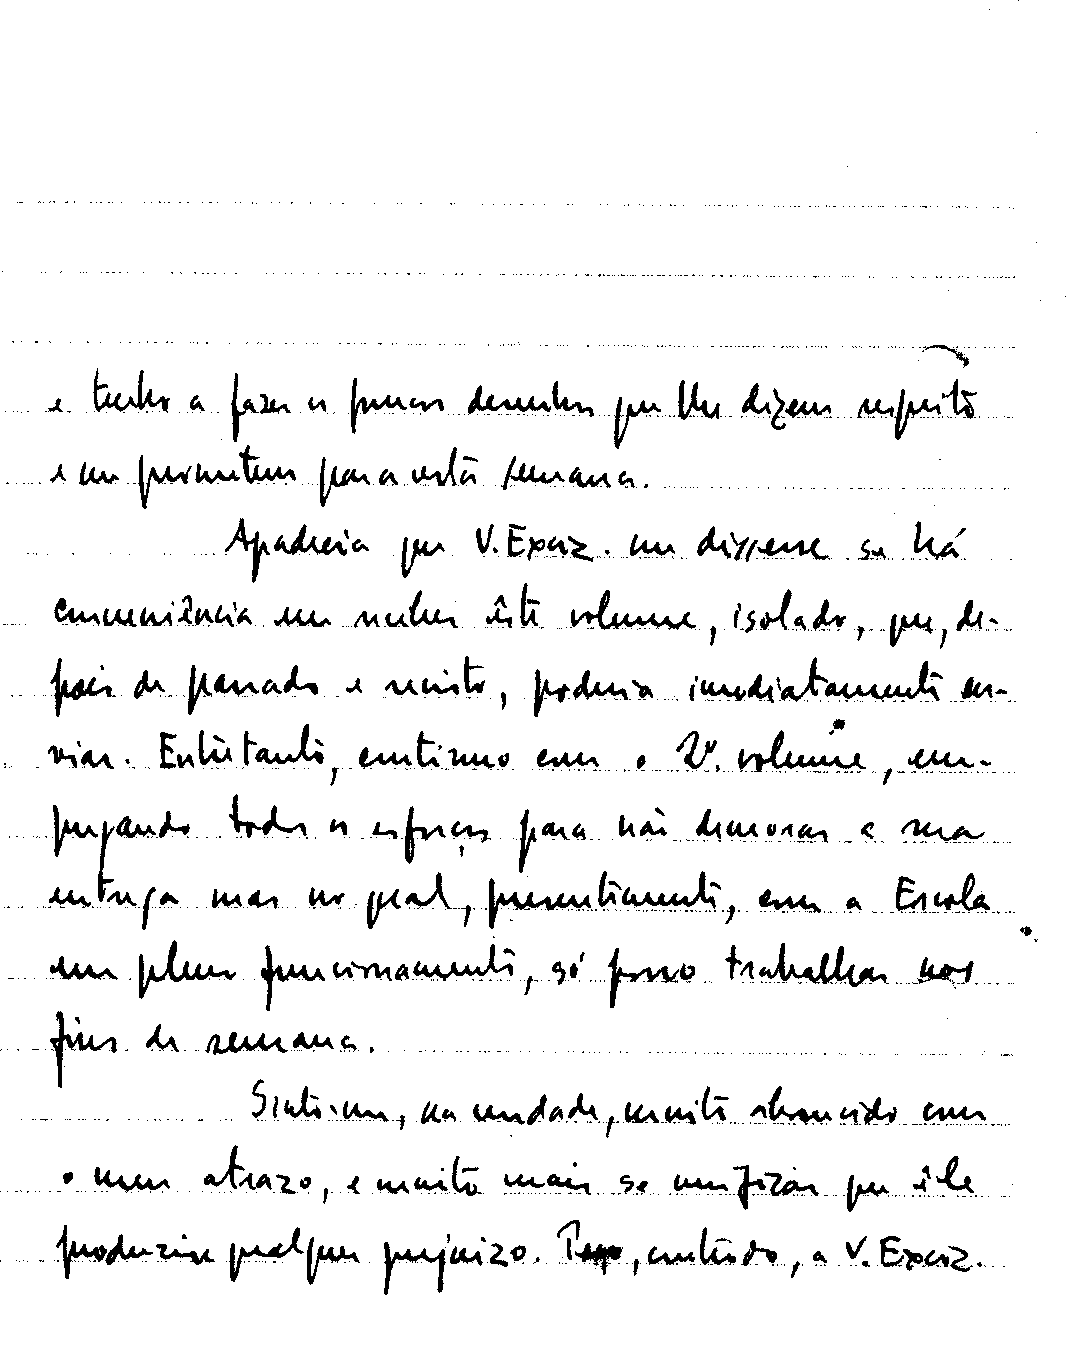 e tenho a fazer os poucos desenhos que lhe dizem respeito
e me prometem para esta semana.
Agradecia que V. Excia. me dissesse se há
conveniência em receber êste volume, isolado, que, de-
pois de passado e revisto, poderia imediatamente en-
viar. Entretanto, continuo com o 2º. volume, em-
pregando todos os esforços para não demorar a sua
entrega mas no qual, presentemente, com a Escola
em pleno funcionamento, só posso trabalhar nos
fins de semana.
Sinto-me, na verdade, muito aborrecido com
o meu atrazo, e muito mais se verifizar que êle
produzisse qualquer prejuizo. Peço, contudo, a V. Excia.